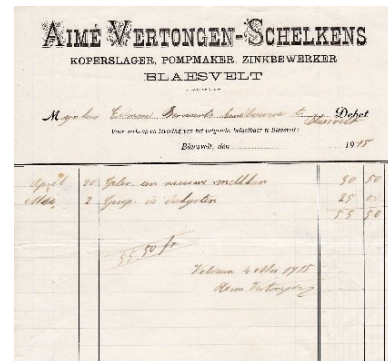 AIMÉ VERTONGEN-SCHELKENS
KOPERSLAGER, POMPMAKER, ZINKBEWERKER
BLAESVELT
Mynheer Edmond landbouwer te Blaesvelt Debet
Voor verkoop en levering van het volgende, betaalbaar te Blaesvelt:
Blaesvelt, den 1915
April 20 Gelev. een nieuwe melkkan 30 50
Mei 2 25 00
55 50
55 50 fr
Voldaan 4 Mei 1915
Aimé Vertongen